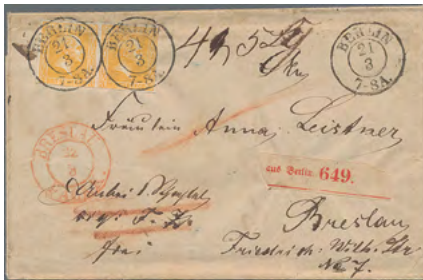 BERLIN
21
3
7-8A.
BERLIN
21
3
7-8A.
BERLIN
21
3
7-8A.
Fräulein Anna Leistner
BRESLAU
22
3
aus Berlin 649.
Anbei 1
frei
Breslau
Friedrich-Wilh. Str
No 7.